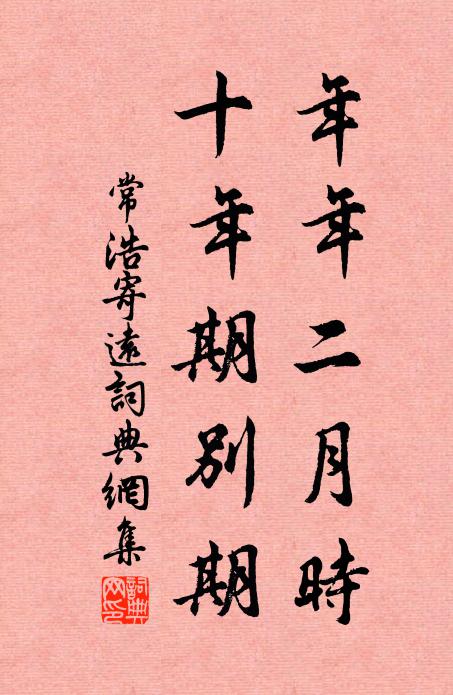 年年二月時
十年期別期
常浩寄遠詞典網集
詞典網印